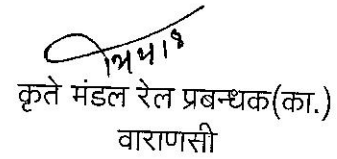 कृते मंडल रेल प्रबन्धक(का.)
वाराणसी